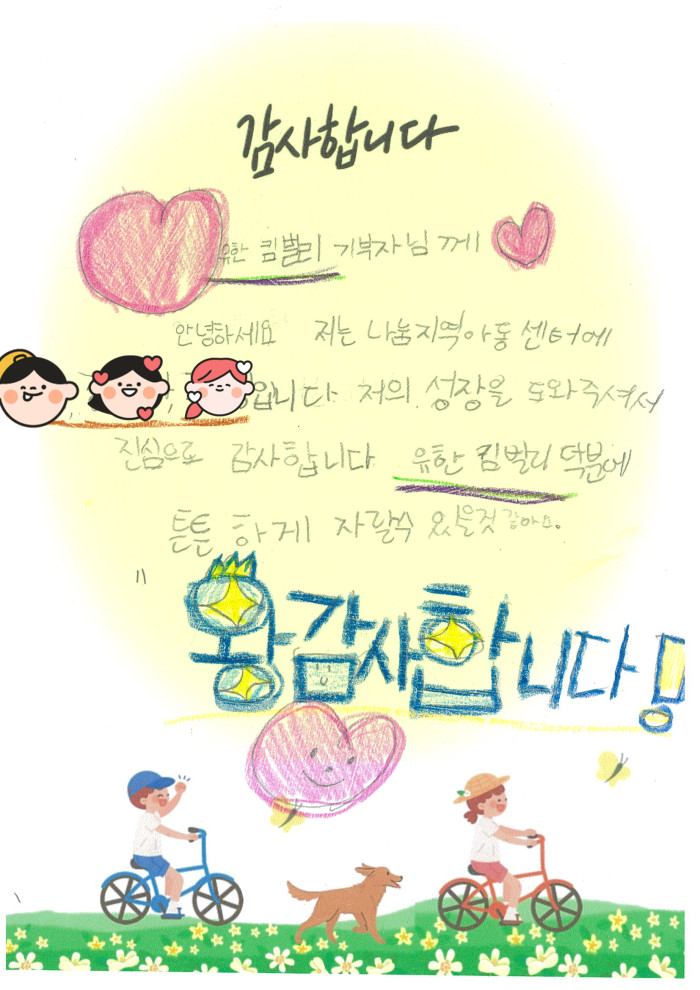 감사합니다
유한 킴벌리 기부자님 께
안녕하세요 저는 나눔지역아동 센터에
입니다 저의 성장을 도와주셔서
진심으로 감사합니다 유한 킴벌리 덕분에
튼튼 하게 자랄수 있을것 같아요.
왕감사합니다!